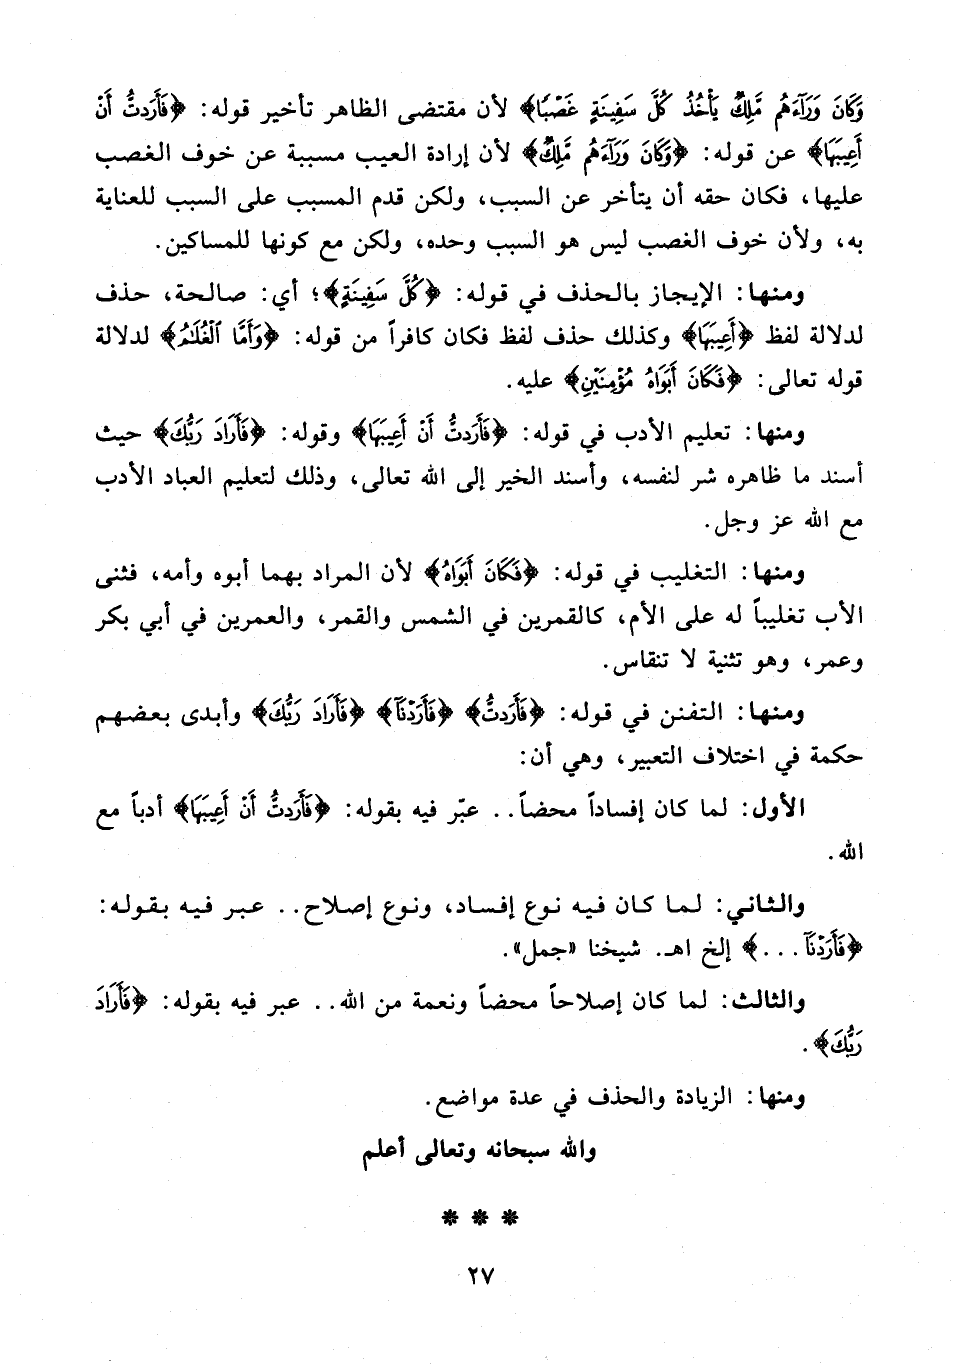 وَكَانَ وَرَآءَهُم مَّلِكٌ يَأْخُذُ كُلَّ سَفِينَةٍ غَصْبًا﴾ لأن مقتضى الظاهر تأخير قوله: ﴿فَأَرَدتُّ أَنْ
أَعِيبَهَا﴾ عن قوله: ﴿وَكَانَ وَرَآءَهُم مَّلِكٌ﴾ لأن إرادة العيب مسببة عن خوف الغصب
عليها، فكان حقه أن يتأخر عن السبب، ولكن قدم المسبب على السبب للعناية
به، ولأن خوف الغصب ليس هو السبب وحده، ولكن مع كونها للمساكين.
ومنها: الإيجاز بالحذف في قوله: ﴿كُلَّ سَفِينَةٍ﴾؛ أي: صالحة، حذف
لدلالة لفظ ﴿أَعِيبَهَا﴾ وكذلك حذف لفظ فكان كافراً من قوله: ﴿وَأَمَّا ٱلْغُلَٰمُ﴾ لدلالة
قوله تعالى: ﴿فَكَانَ أَبَوَاهُ مُؤْمِنَيْنِ﴾ عليه.
ومنها: تعليم الأدب في قوله: ﴿فَأَرَدتُّ أَنْ أَعِيبَهَا﴾ وقوله: ﴿فَأَرَادَ رَبُّكَ﴾ حيث
أسند ما ظاهره شر لنفسه، وأسند الخير إلى الله تعالى، وذلك لتعليم العباد الأدب
مع الله عز وجل.
ومنها: التغليب في قوله: ﴿فَكَانَ أَبَوَاهُ﴾ لأن المراد بهما أبوه وأمه، فثنى
الأب تغليباً له على الأم، كالقمرين في الشمس والقمر، والعمرين في أبي بكر
وعمر، وهو تثنية لا تنقاس.
ومنها: التفنن في قوله: ﴿فَأَرَدتُّ﴾ ﴿فَأَرَدْنَآ﴾ ﴿فَأَرَادَ رَبُّكَ﴾ وأبدى بعضهم
حكمة في اختلاف التعبير، وهي أن:
الأول: لما كان إفساداً محضاً.. عبّر فيه بقوله: ﴿فَأَرَدتُّ أَنْ أَعِيبَهَا﴾ أدباً مع
الله.
والثاني: لما كان فيه نوع إفساد، ونوع إصلاح.. عبر فيه بقوله:
﴿فَأَرَدْنَآ...﴾ إلخ اهـ. شيخنا «جمل».
والثالث: لما كان إصلاحاً محضاً ونعمة من الله.. عبر فيه بقوله: ﴿فَأَرَادَ
رَبُّكَ﴾.
ومنها: الزيادة والحذف في عدة مواضع.
والله سبحانه وتعالى أعلم
* * *
٢٧